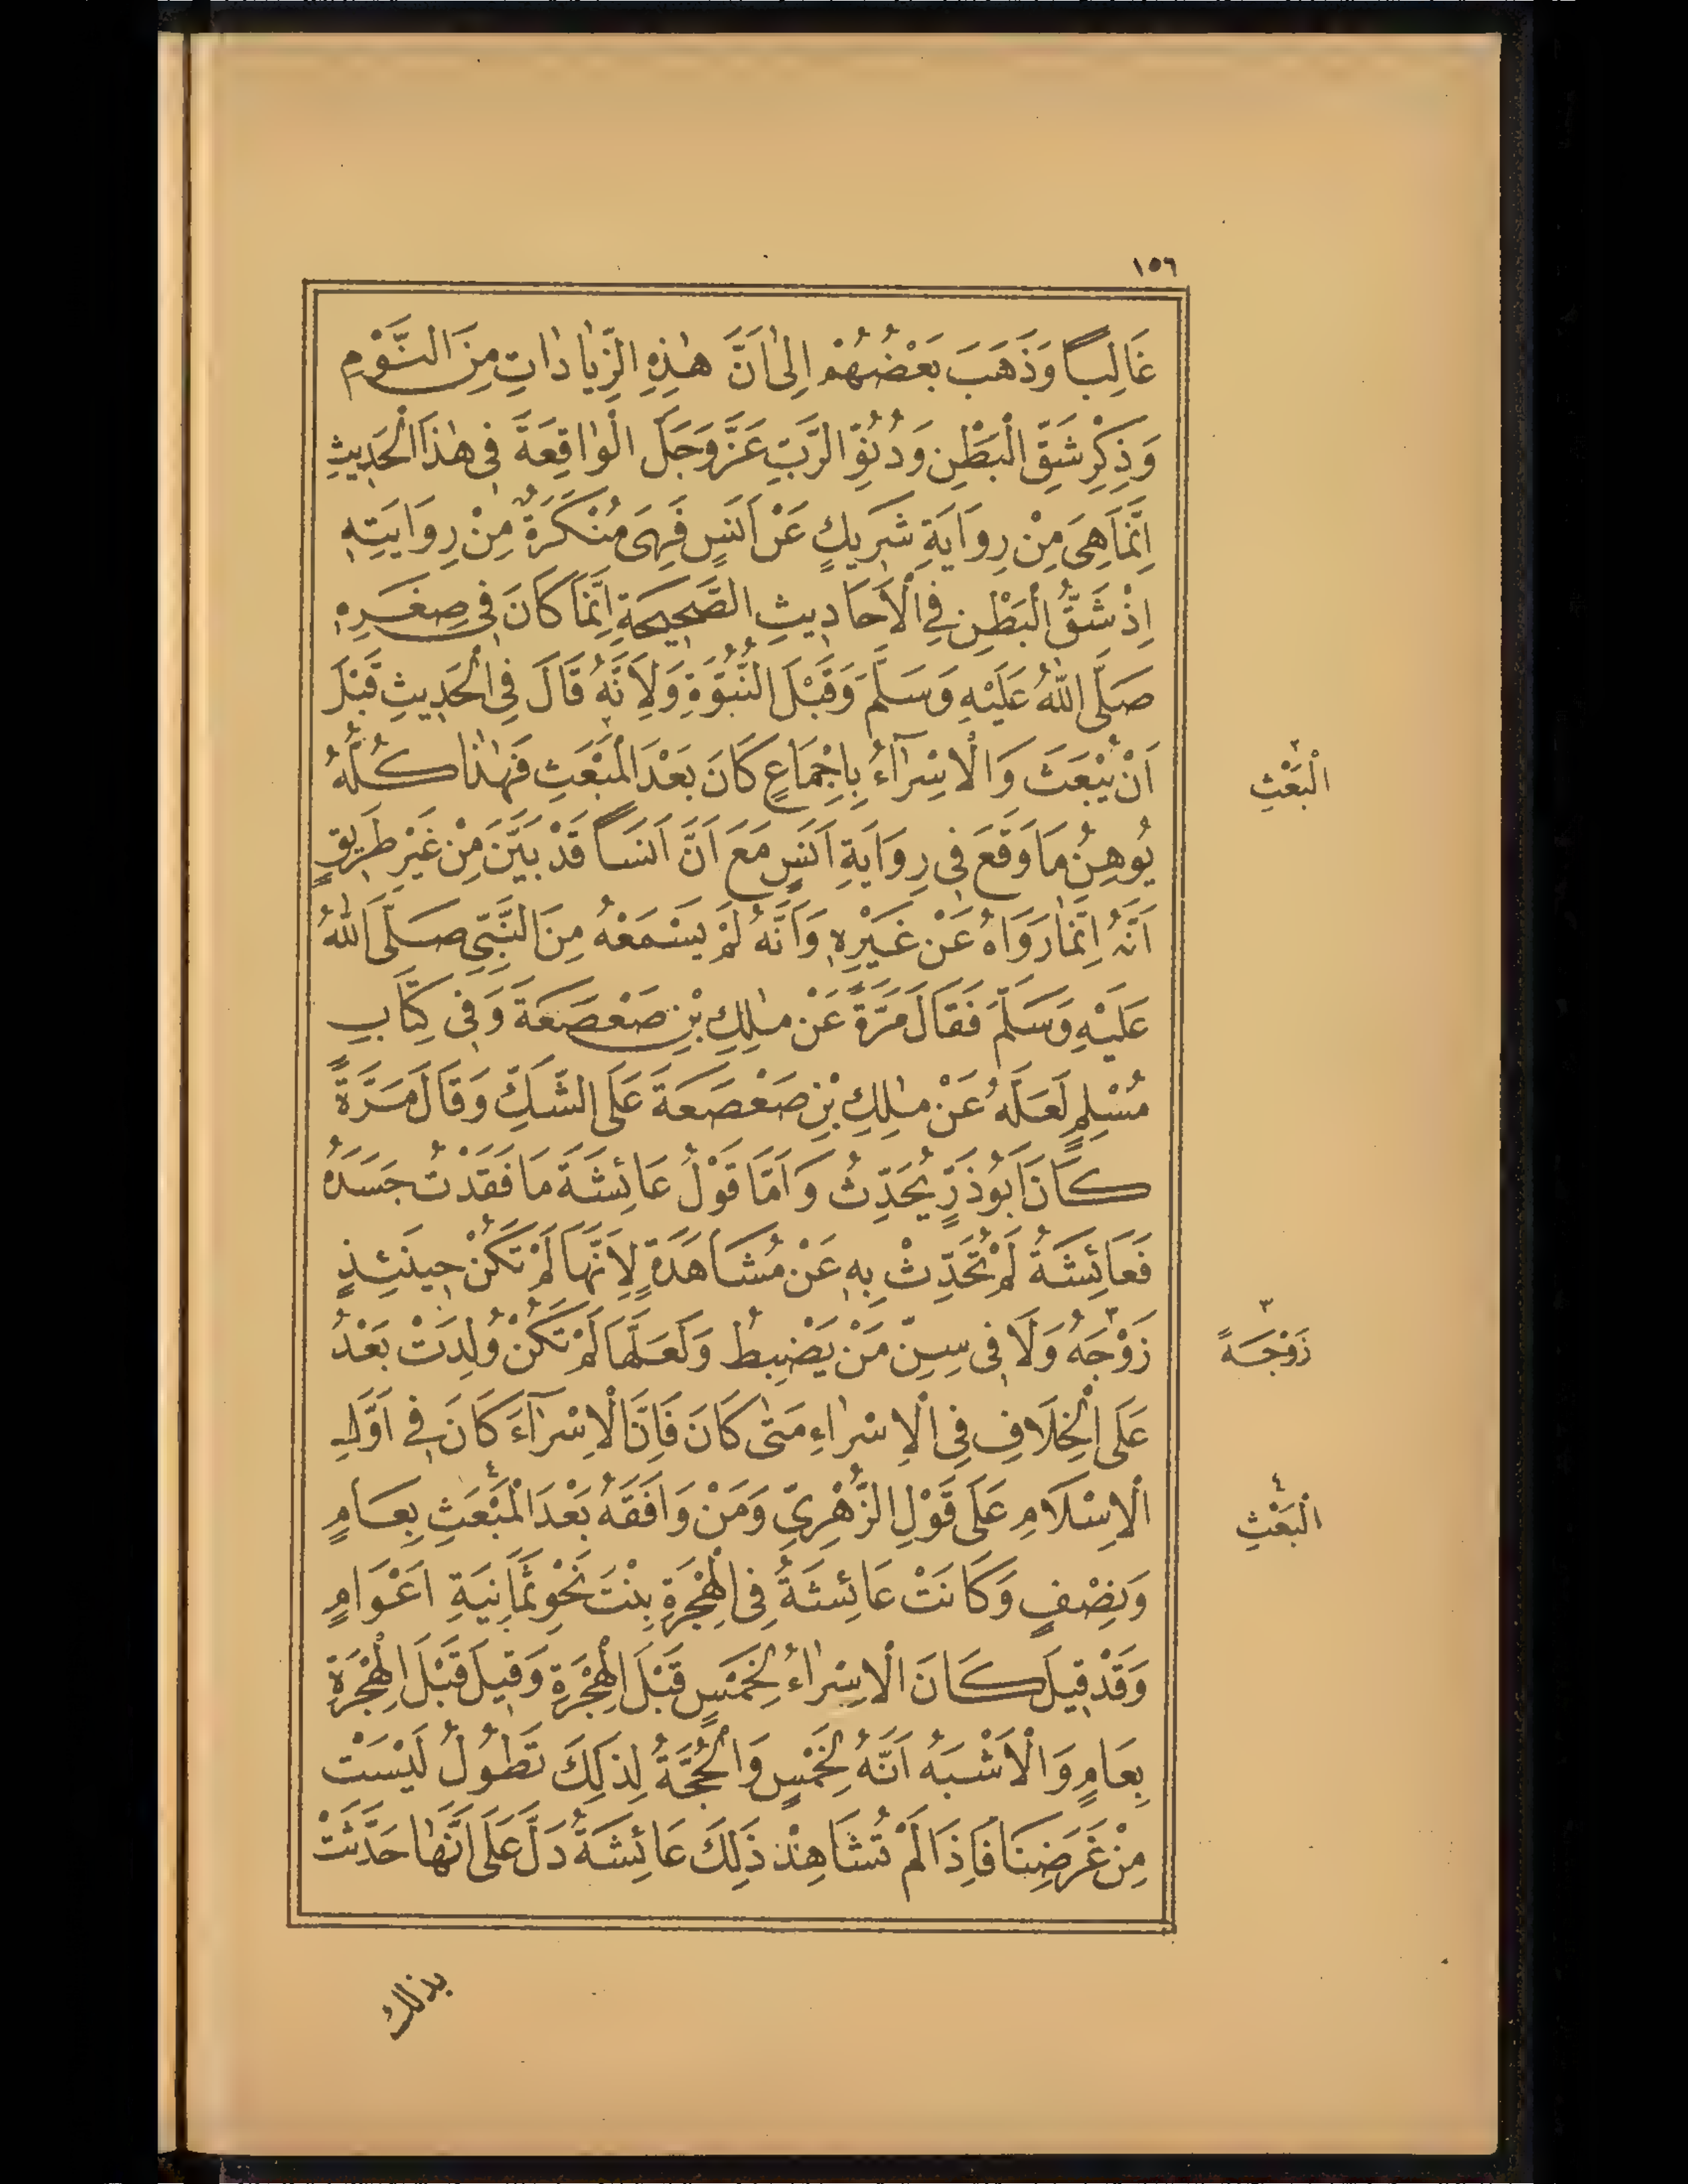 ١٥٦
غَالِباً وَذَهَبَ بَعْضُهُمْ اِلٰى اَنَّ هٰذِهِ الزِّيَادَاتِ مِنَ النَّوْمِ
وَذِكْرِ شَقِّ الْبَطْنِ وَدُنُوِّ الرَّبِّ عَزَّ وَجَلَّ الْوَاقِعَةَ فِى هٰذَا الْحَدِيثِ
اِنَّمَا هِىَ مِنْ رِوَايَةِ شَرِيكٍ عَنْ اَنَسٍ فَهِىَ مُنْكَرَةٌ مِنْ رِوَايَتِهِ
اِذْ شَقُّ الْبَطْنِ فِى الْاَحَادِيثِ الصَّحِيحَةِ اِنَّمَا كَانَ فِى صِغَرِهِ
صَلَّى اللهُ عَلَيْهِ وَسَلَّمَ وَقَبْلَ النُّبُوَّةِ وَلِاَنَّهُ قَالَ فِى الْحَدِيثِ قَبْلَ
اَنْ يُبْعَثَ وَالْاِسْرَآءُ بِاِجْمَاعٍ كَانَ بَعْدَ الْمَبْعَثِ فَهٰذَا كُلُّهُ
الْبَعْثِ ٢
يُوهِنُ مَا وَقَعَ فِى رِوَايَةِ اَنَسٍ مَعَ اَنَّ اَنَساً قَدْ بَيَّنَ مِنْ غَيْرِ طَرِيقٍ
اَنَّهُ اِنَّمَا رَوَاهُ عَنْ غَيْرِهِ وَاَنَّهُ لَمْ يَسْمَعْهُ مِنَ النَّبِىِّ صَلَّى اللهُ
عَلَيْهِ وَسَلَّمَ فَقَالَ مَرَّةً عَنْ مٰلِكِ بْنِ صَعْصَعَةَ وَفِى كِتَابِ
مُسْلِمٍ لَعَلَّهُ عَنْ مٰلِكِ بْنِ صَعْصَعَةَ عَلَى الشَّكِّ وَقَالَ مَرَّةً
كَانَ اَبُو ذَرٍّ يُحَدِّثُ وَاَمَّا قَوْلُ عَائِشَةَ مَا فَقَدْتُ جَسَدَهُ
فَعَائِشَةُ لَمْ تُحَدِّثْ بِهِ عَنْ مُشَاهَدَةٍ لِاَنَّهَا لَمْ تَكُنْ حِينَئِذٍ
زَوْجَهُ ٣ وَلَا فِى سِنِّ مَنْ يَضْبِطُ وَلَعَلَّهَا لَمْ تَكُنْ وُلِدَتْ بَعْدُ
زَوْجَةً ٣
عَلَى الْخِلَافِ فِى الْاِسْرَاءِ مَتٰى كَانَ فَاِنَّ الْاِسْرَآءَ كَانَ فِى اَوَّلِ
الْاِسْلَامِ عَلَى قَوْلِ الزُّهْرِىِّ وَمَنْ وَافَقَهُ بَعْدَ الْمَبْعَثِ ٤ بِعَامٍ
الْبَعْثِ ٤
وَنِصْفٍ وَكَانَتْ عَائِشَةُ فِى الْهِجْرَةِ بِنْتَ نَحْوِ ثَمَانِيَةِ اَعْوَامٍ
وَقَدْ قِيلَ كَانَ الْاِسْرَاءُ لِخَمْسٍ قَبْلَ الْهِجْرَةِ وَقِيلَ قَبْلَ الْهِجْرَةِ
بِعَامٍ وَالْاَشْبَهُ اَنَّهُ لِخَمْسٍ وَالْحُجَّةُ لِذٰلِكَ تَطُولُ لَيْسَتْ
مِنْ غَرَضِنَا فَاِذَا لَمْ تُشَاهِدْ ذٰلِكَ عَائِشَةُ دَلَّ عَلَى اَنَّهَا حَدَّثَتْ
بذلك